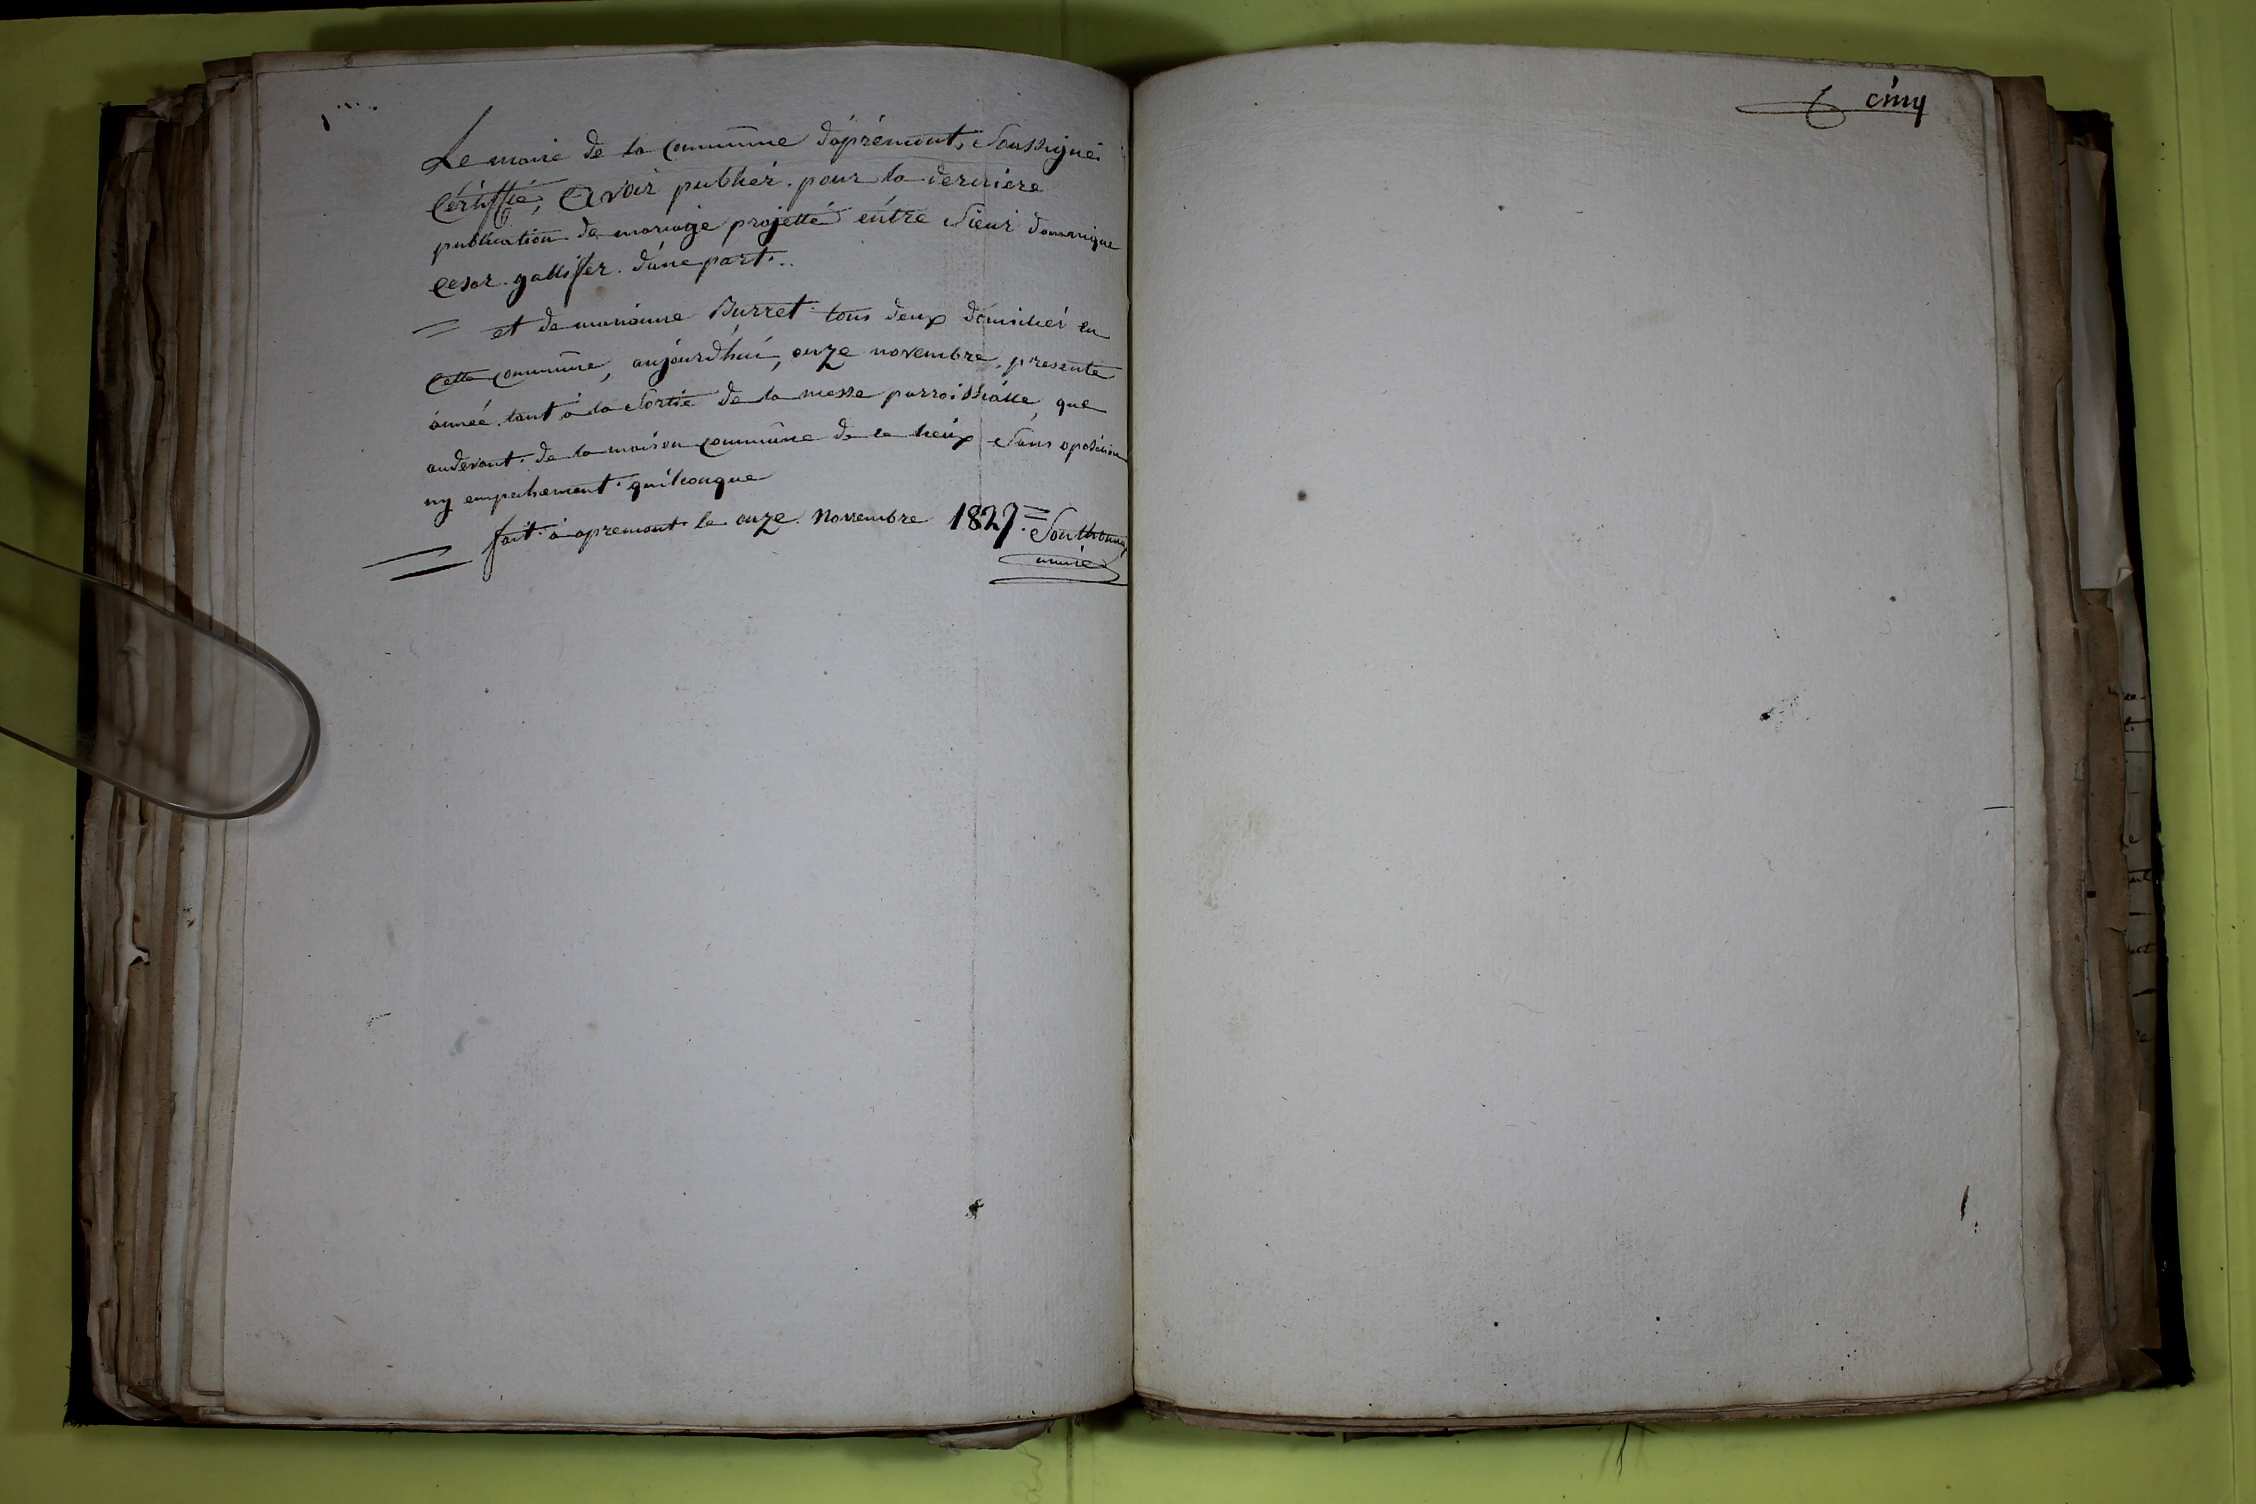 Le maire de la commune d'áprémont, Soussigné
Cértiffié, Avoir publiér. pour la derniere
publication de mariage projetté entre Sieur dominique
Cesar. galliffer. d'úne part..
= et de marianne Burret tous deux domiciliés en
Cette commune, aujourd'hui, onze novembre, présente
année tant à la Sortie de la messe parroissialle, que
audevant. de la maison commune de ce lieux Sans oposition
ny empechement quélconque
= fait à apremont le onze. Novembre 1827. =
maire
cinq